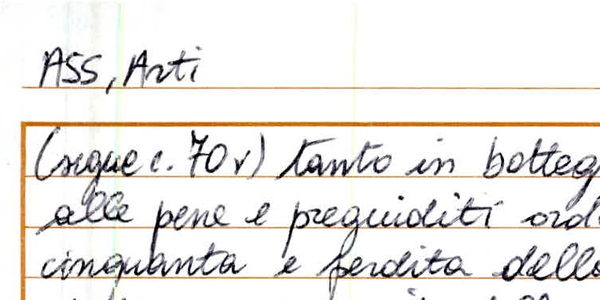 ASS, Arti
(segue c. 70v) tanto in botteg
alle pene e pregiuditi ord
cinquanta e perdita dell